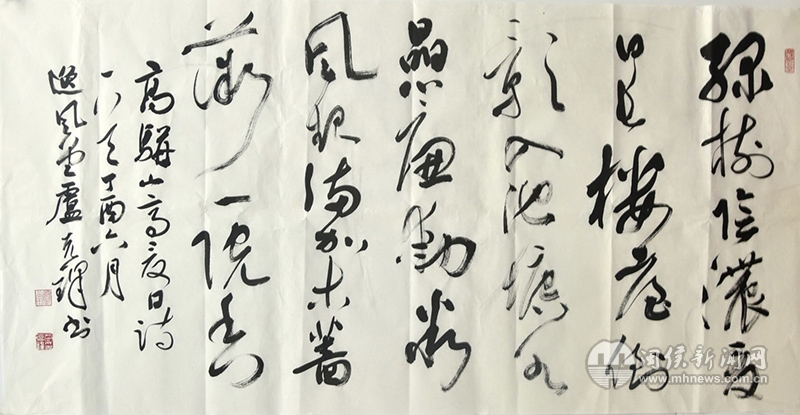 綠樹陰濃夏
日長樓臺倒
影入池塘水
晶簾動微
風起滿架薔
薇一院香
高駢山亭夏日詩
丁酉六月
逸風堂盧書
闽侯新闻网
www.mhnews.com.cn